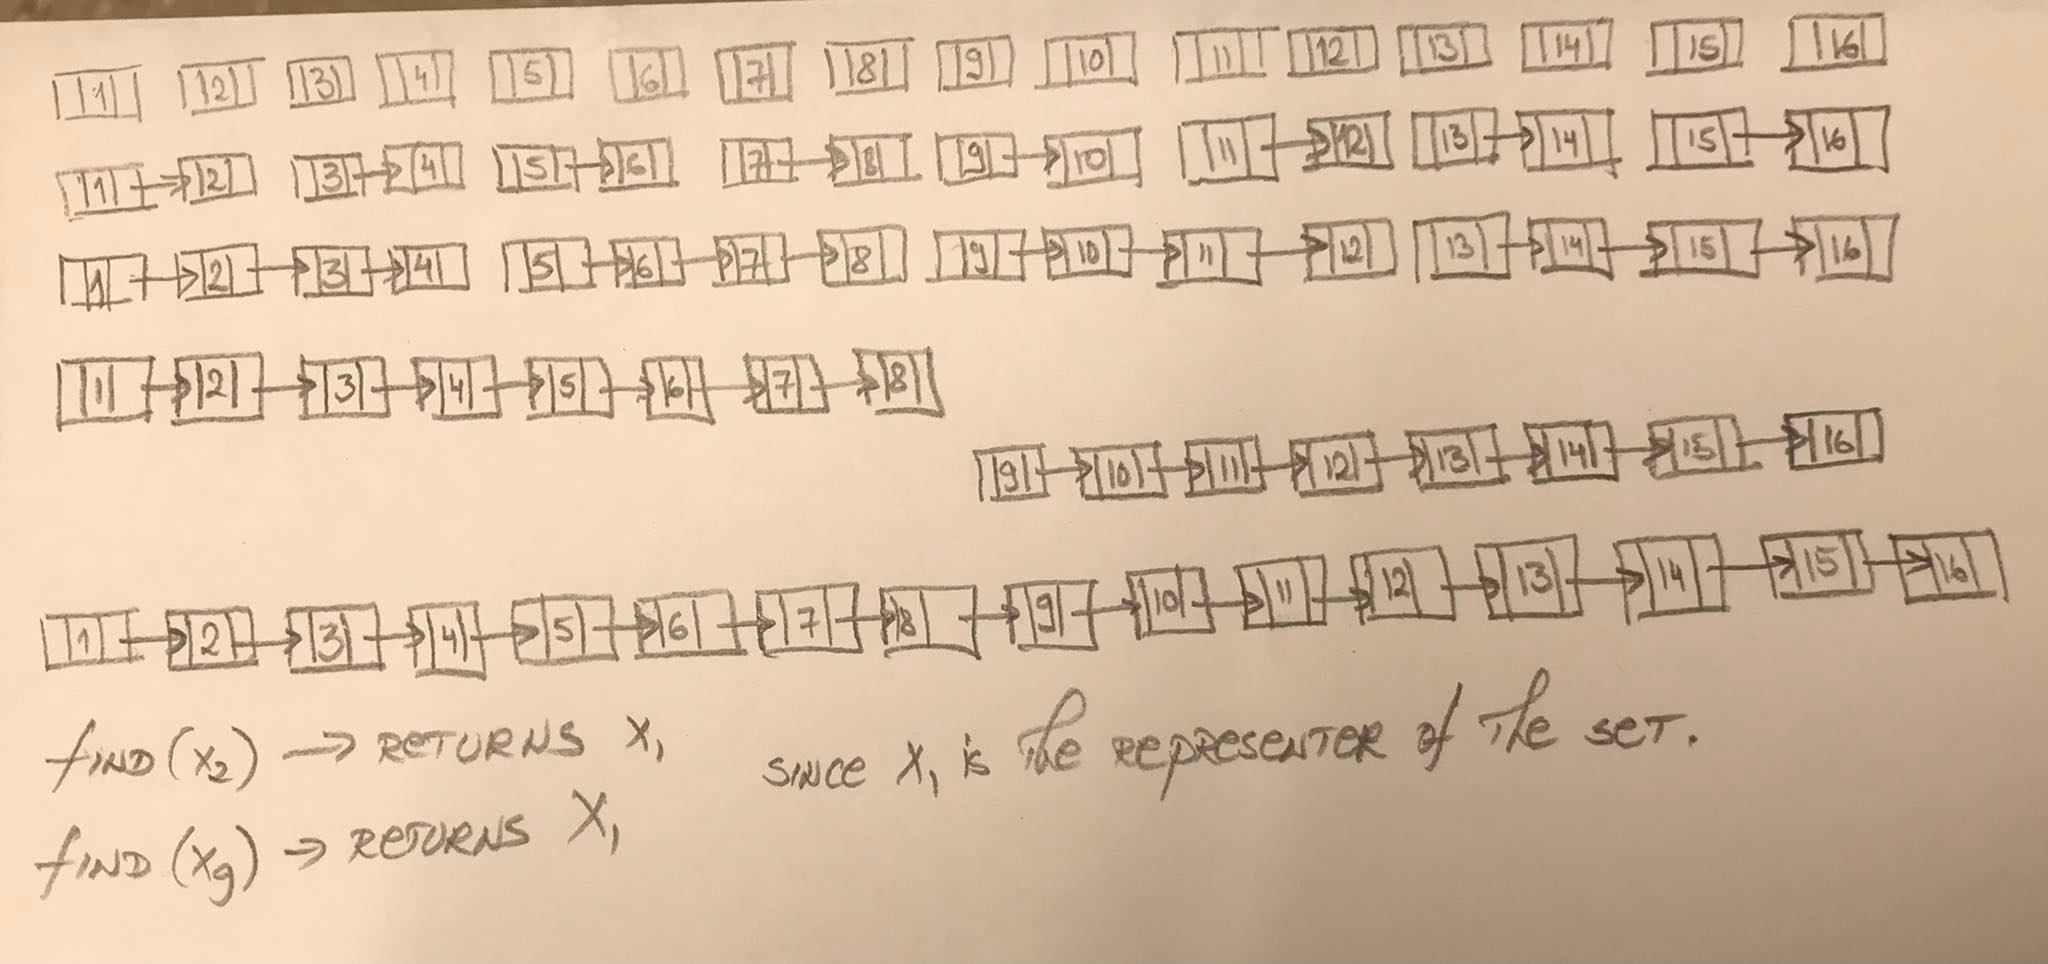 1 2 3 4 5 6 7 8 9 10 11 12 13 14 15 16
1 2 3 4 5 6 7 8 9 10 11 12 13 14 15 16
1 2 3 4 5 6 7 8 9 10 11 12 13 14 15 16
1 2 3 4 5 6 7 8
9 10 11 12 13 14 15 16
1 2 3 4 5 6 7 8 9 10 11 12 13 14 15 16
FIND (X₂) → RETURNS X₁ SINCE X₁ is The REPRESENTER of The SET.
FIND (X₉) → RETURNS X₁